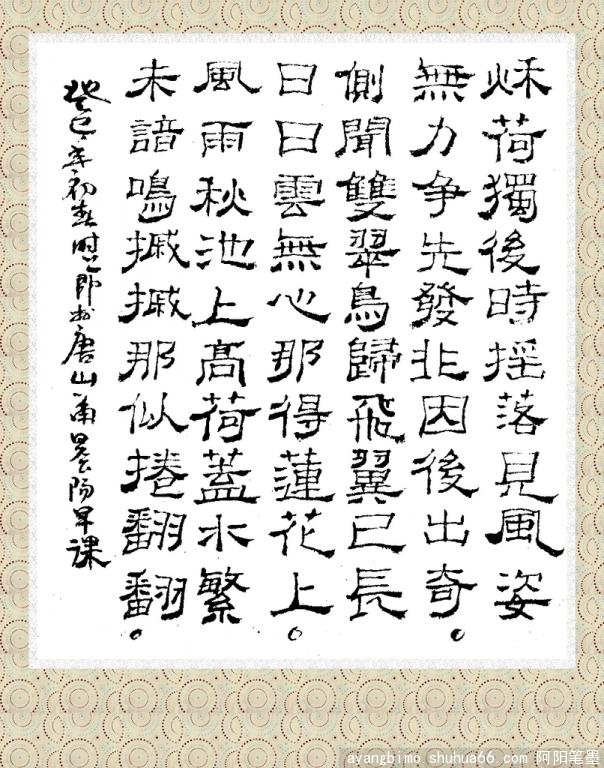 秌荷獨後時搖落見風姿
無力争先發非因後出奇
側聞雙翠鳥歸飛翼已長
日日雲無心那得蓮花上
風雨秋池上髙荷蓋水繁
未諳鳴摵摵那似捲翻翻
癸巳年初春时節於唐山阳早課
ayangbimo.shuhua66.com 阿阳笔墨